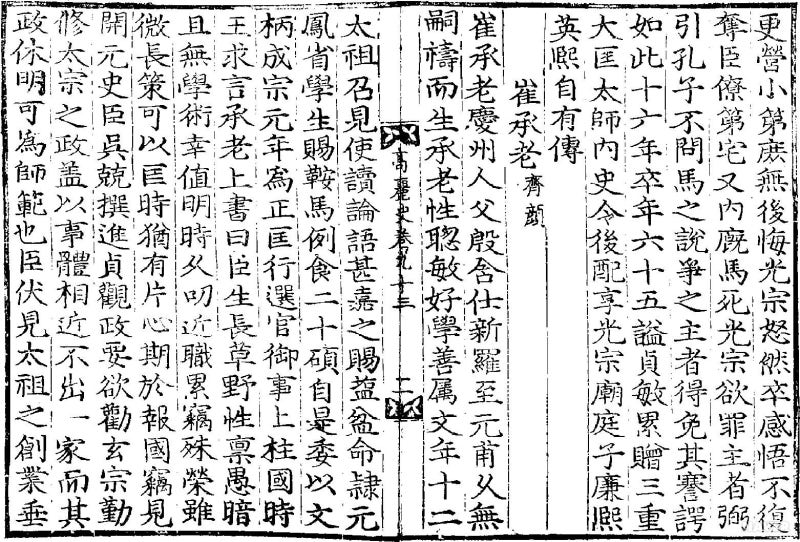 更營小第庶無後悔光宗怒然卒感悟不復
奪臣僚第宅又內廐馬死光宗欲罪主者弼
引孔子不問馬之說爭之主者得免其謇諤
如此十六年卒年六十五謚貞敏累贈三重
大匡太師內史令後配享光宗廟庭子廉熙
英熙自有傳
崔承老 齊顔
崔承老慶州人父殷含仕新羅至元甫久無
嗣禱而生承老性聦敏好學善属文年十二
高麗史卷九十三 二
太祖召見使讀論語甚嘉之賜鹽盆命隷元
鳳省學生賜鞍馬例食二十碩自是委以文
柄成宗元年為正匡行選官御事上柱國時
王求言承老上書曰臣生長草野性禀愚暗
且無學術幸值明時久叨近職累竊殊榮雖
微長策可以匡時猶有片心期於報國竊見
開元史臣吳兢撰進貞觀政要欲勸玄宗勤
修太宗之政盖以事體相近不出一家而其
政休明可為師範也臣伏見太祖之創業垂